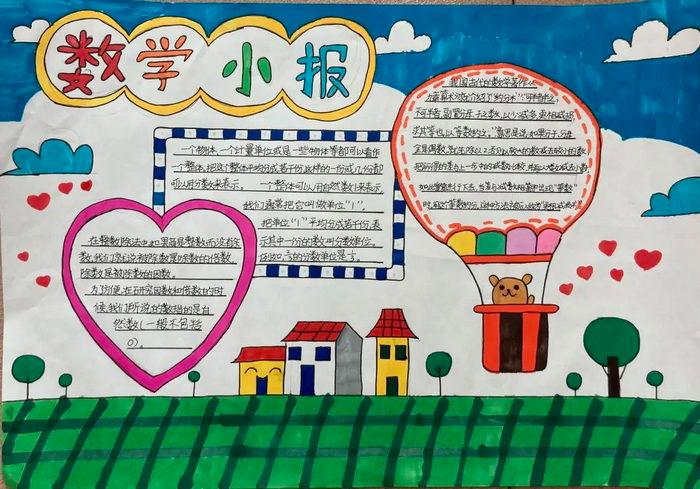 数学小报
一个物体、一个计量单位或是一些物体等都可以看作
一个整体，把这个整体平均分成若干份，这样的一份或几份都
可以用分数来表示。 一个整体可以用自然数1来表示，
我们通常把它叫做单位“1”。
把单位“1”平均分成若干份，表
示其中一份的数叫分数单位。
的分数单位是
在整数除法中，如果商是整数而没有余
数，我们就说被除数是除数的倍数，
除数是被除数的因数。
为了方便，在研究因数和倍数的时
候，我们所说的数指的是自
然数(一般不包括
0)。
我国古代的数学著作《九
章算术》介绍了“约分术”：“可半者半之，
不可半者，副置分母、子之数，以少减多，更相减损，
求其等也，以等数约之。”意思是说：如果分子、分母
全是偶数，就先除以2；否则以较大的数减去较小的数，
把所得的差与上一步中的减数比较，并再以大数减去小数，
如此重复进行下去，当差与减数相等即出现“等数”
时，用这个等数约分。这种方法被后人称为“更相减损术”。